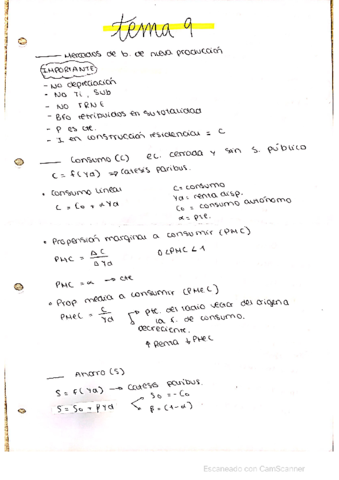 tema 9
Mercados de b. de nueva producción
IMPORTANTE
- NO depreciación
- NO Ti, Sub
- NO TRNE
- Bfo retribuidos en su totalidad
- P es cte.
- I en construcción residencial = C
Consumo (C) ec. cerrada y sin S. público
C = f(Yd) => Cateris paribus.
• Consumo lineal
C = Co + αYd
C = consumo
Yd = renta disp.
Co = consumo autónomo
α = pte.
• Propensión marginal a consumir (PMC)
PMC = ΔC / ΔYd
0 < PMC < 1
PMC = α → cte
• Prop media a consumir (PMeC)
PMeC = C / Yd
pte. del radio vector del origen a
la f. de consumo.
decreciente.
↑ Renta ↓ PMeC
Ahorro (S)
S = f(Yd) → Cateris paribus.
S = So + βYd
So = -Co
β = (1-α)
Escaneado con CamScanner